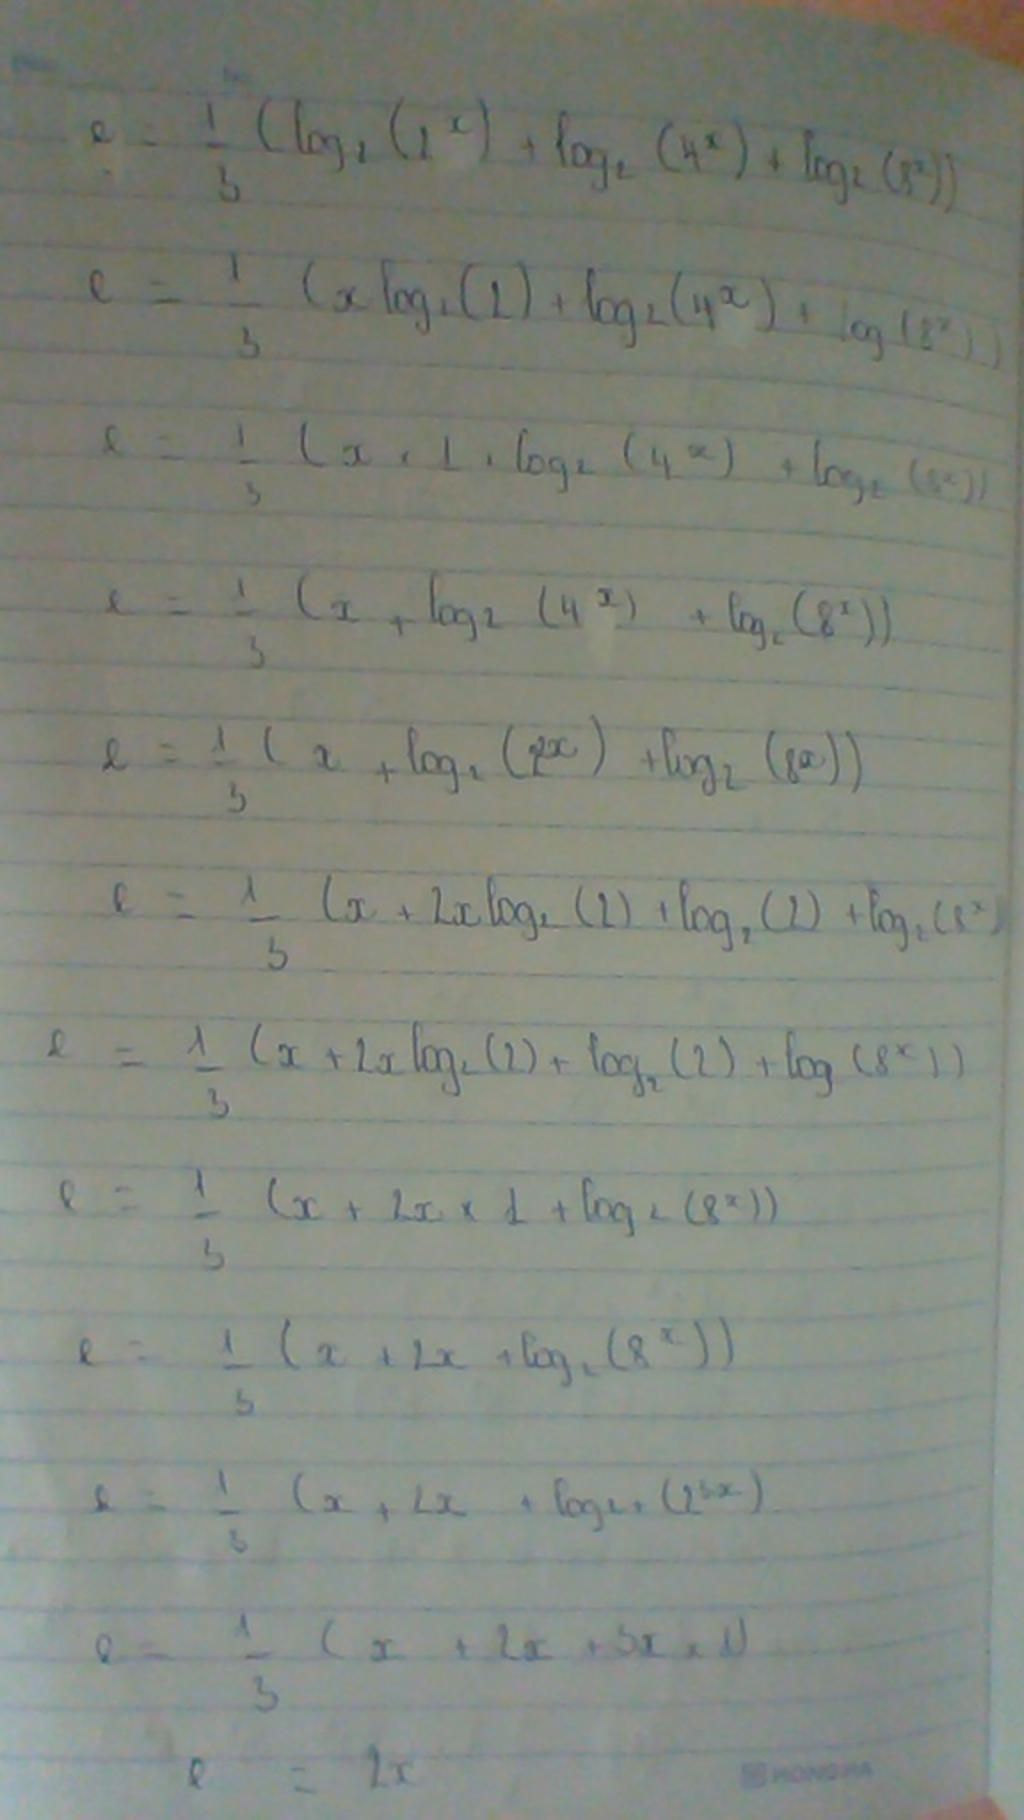 e = 1/3 (log₂(2ˣ) + log₂(4ˣ) + log₂(8ˣ))
e = 1/3 (x log₂(2) + log₂(4ˣ) + log(8ˣ))
e = 1/3 (x · 1 · log₂(4ˣ) + log₂(8ˣ))
e = 1/3 (x + log₂(4ˣ) + log₂(8ˣ))
e = 1/3 (x + log₂(2²ˣ) + log₂(8ˣ))
e = 1/3 (x + 2x log₂(2) + log₂(2) + log₂(8ˣ)
e = 1/3 (x + 2x log₂(2) + log₂(2) + log(8ˣ))
e = 1/3 (x + 2x × 1 + log₂(8ˣ))
e = 1/3 (x + 2x + log₂(8ˣ))
e = 1/3 (x + 2x + log₂ · (2³ˣ)
e = 1/3 (x + 2x + 3x × 1)
e = 2x